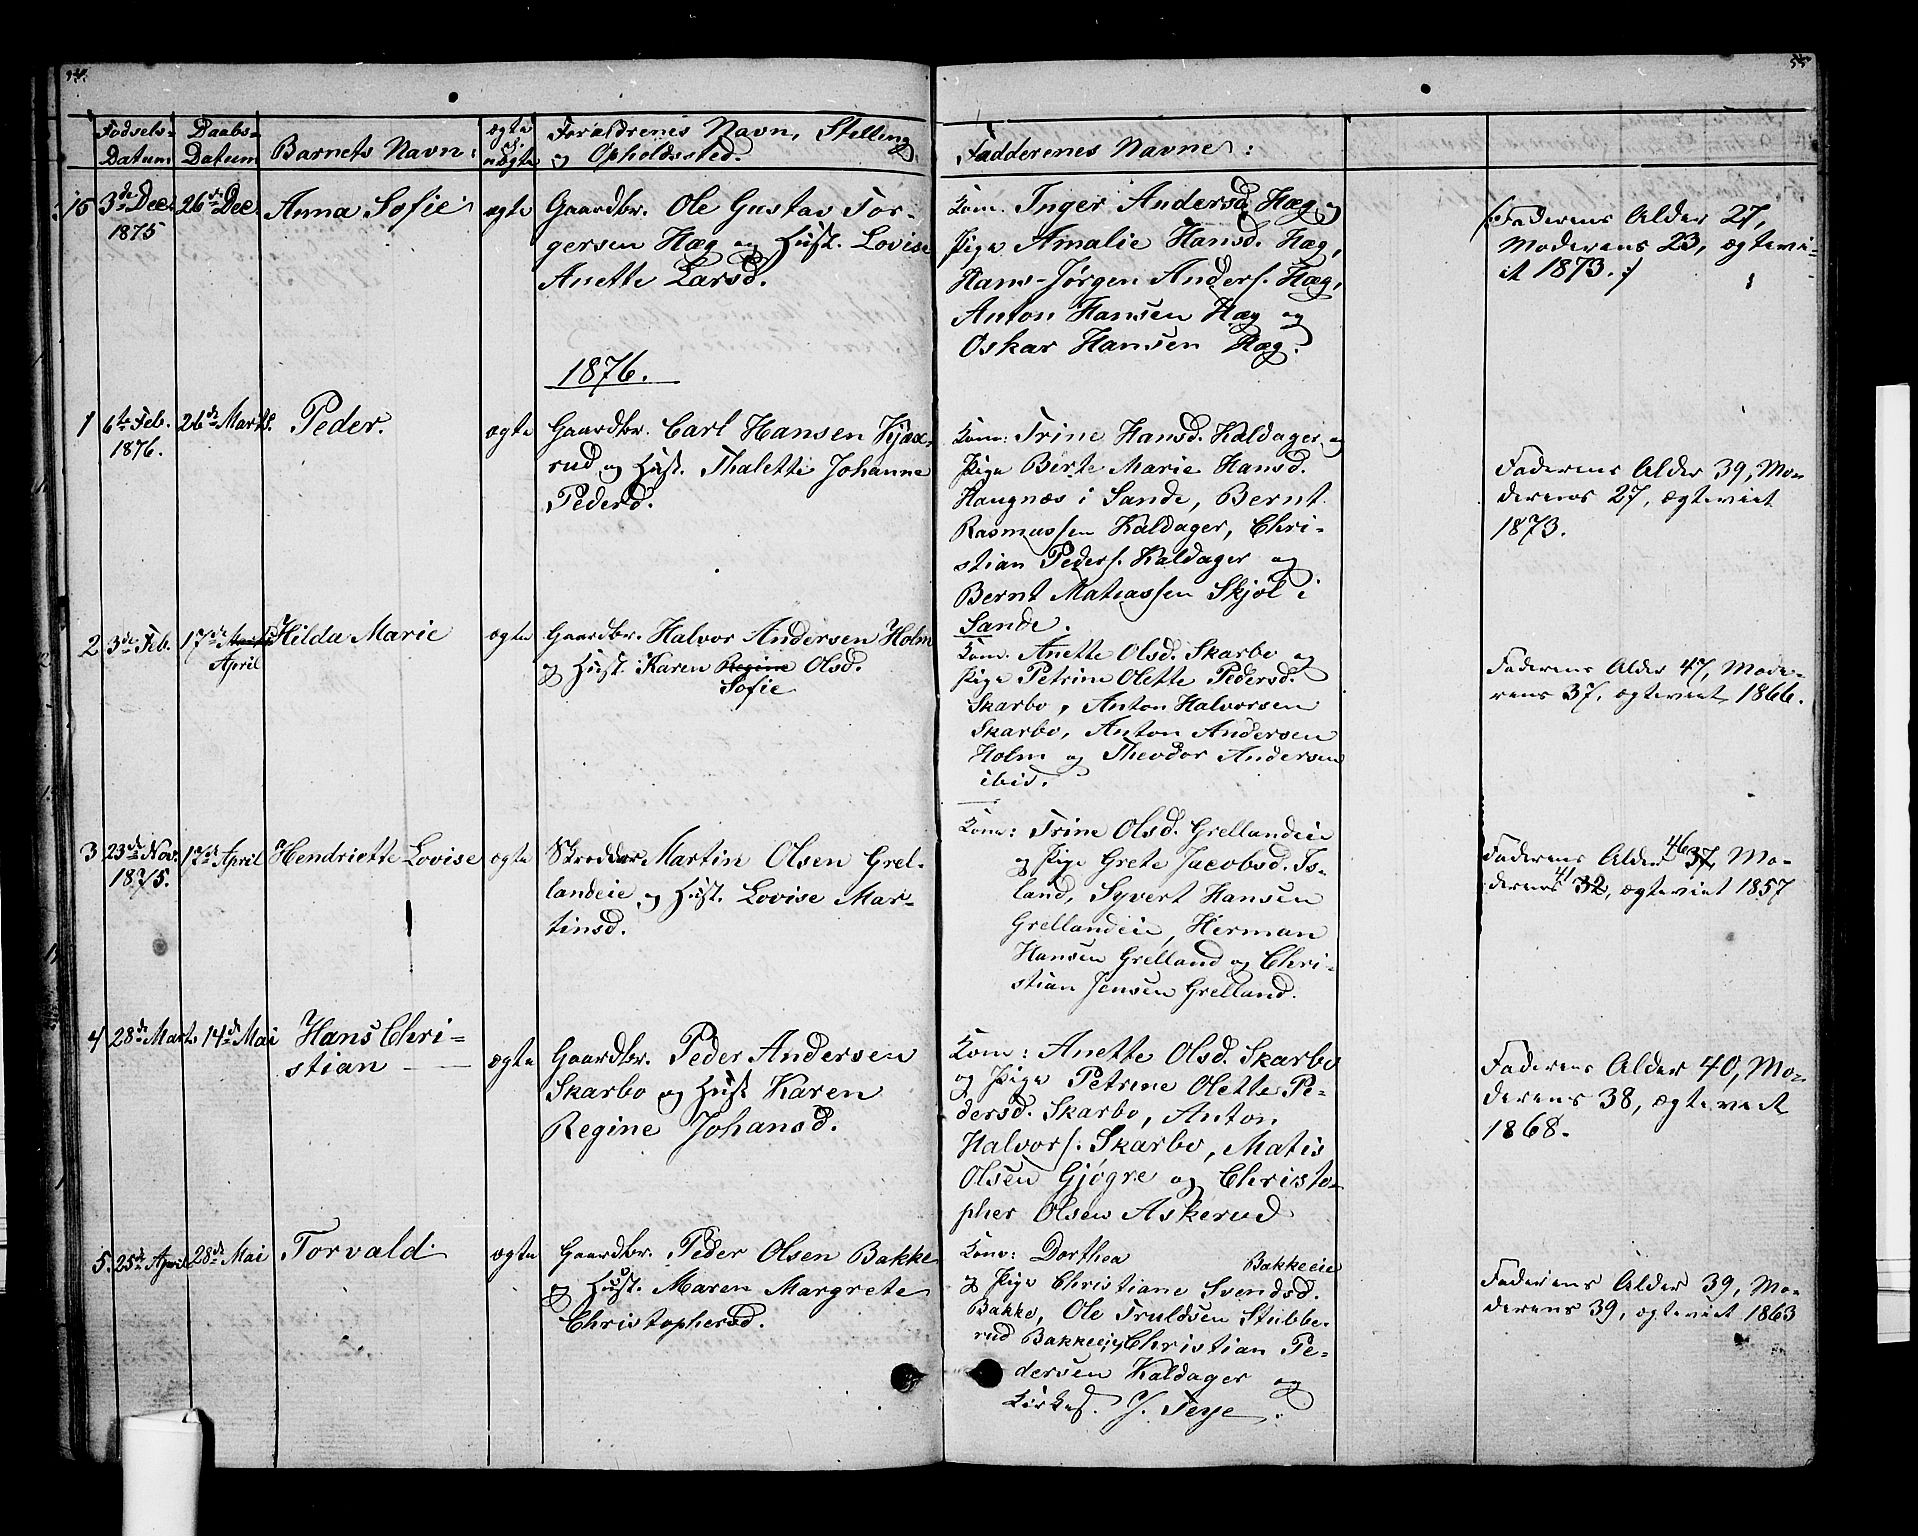 54.
55
Fødsels-
Datum
Daabs-
Datum
Barnets Navn:
ægte
el.
uægte
Forældrenes Navn, Stilling
og Opholdssted.
Faddernes Navne:
15 3de Dec.
1875
26de Dec.
Anna Sofie
ægte
Gaardbr. Ole Gustav Tor-
gersen Hæg og Hust. Lovise
Anette Larsd.
Kom. Inger Andersd. Hæg og
Pige Amalie Hansd. Hæg,
Hans-Jørgen Anders. Hæg,
Anton Hansen Hæg og
Oskar Hansen Hæg.
(: Faderens Alder 27,
Moderens 23, ægtevi-
et 1873. :)
1876.
1 6te Feb.
1876.
26de Marts.
Peder.
ægte
Gaardbr. Carl Hansen Kjær-
rud og Hust. Thalette Johanne
Pedersd.
Kom: Trine Hansd. Kaldager og
Pige Berte Marie Hansd.
Haugnæs i Sande, Bernt
Rasmussen Kaldager, Chri-
stian Peders. Kaldager og
Bernt Matiassen Skjøl i
Sande.
Faderens Alder 39, Mo-
derens 27, ægteviet
1873.
2 3de Feb.
17de
April
Hilda Marie
ægte
Gaardbr. Halvor Andersen Holm
og Hust. Karen Regine Olsd.
Sofie
Kom. Anette Olsd. Skarbo og
Pige Petrine Olette Pedersd.
Skarbo, Anton Halvorsen
Skarbo, Anton Andersen
Holm og Theodor Andersen
ibid.
Faderens Alder 47, Mode-
rens 37, ægteviet 1866.
3 23de Nov.
1875.
17de April
Henriette Lovise
ægte
Skrædder Martin Olsen Grel-
landeie og Hust. Lovise Mar-
tinsd.
Kom: Trine Olsd. Grellandeie
og Pige Grete Jacobsd. Is-
land, Syvert Hansen
Grellandeie, Herman
Hansen Grelland og Chri-
stian Jensen Grelland.
Faderens Alder 46 37, Mo-
derens 41 32, ægteviet 1857
4 28de Marts
14de Mai
Hans Chri-
stian
ægte
Gaardbr. Peder Andersen
Skarbo og Hust Karen
Regine Johansd.
Kom: Anette Olsd. Skarbo
og Pige Petrine Olette Pe-
dersd. Skarbo, Anton
Halvors. Skarbo, Matis
Olsen Gjøgre og Christo-
pher Olsen Askerud
Faderens Alder 40, Mo-
derens 38, ægteviet
1868.
5. 25de April
28de Mai
Torvald
ægte
Gaardbr. Peder Olsen Bakke
og Hust. Maren Margrete
Christophersd.
Kom: Dorthea Bakkeeie
og Pige Christiane Svendsd.
Bakke, Ole Truldsen Stubbe-
rud Bakkeeie, Christian Pe-
dersen Kaldager og
Kirkes. J. Teye.
Faderens Alder 39, Mo-
derens 39, ægteviet 1863